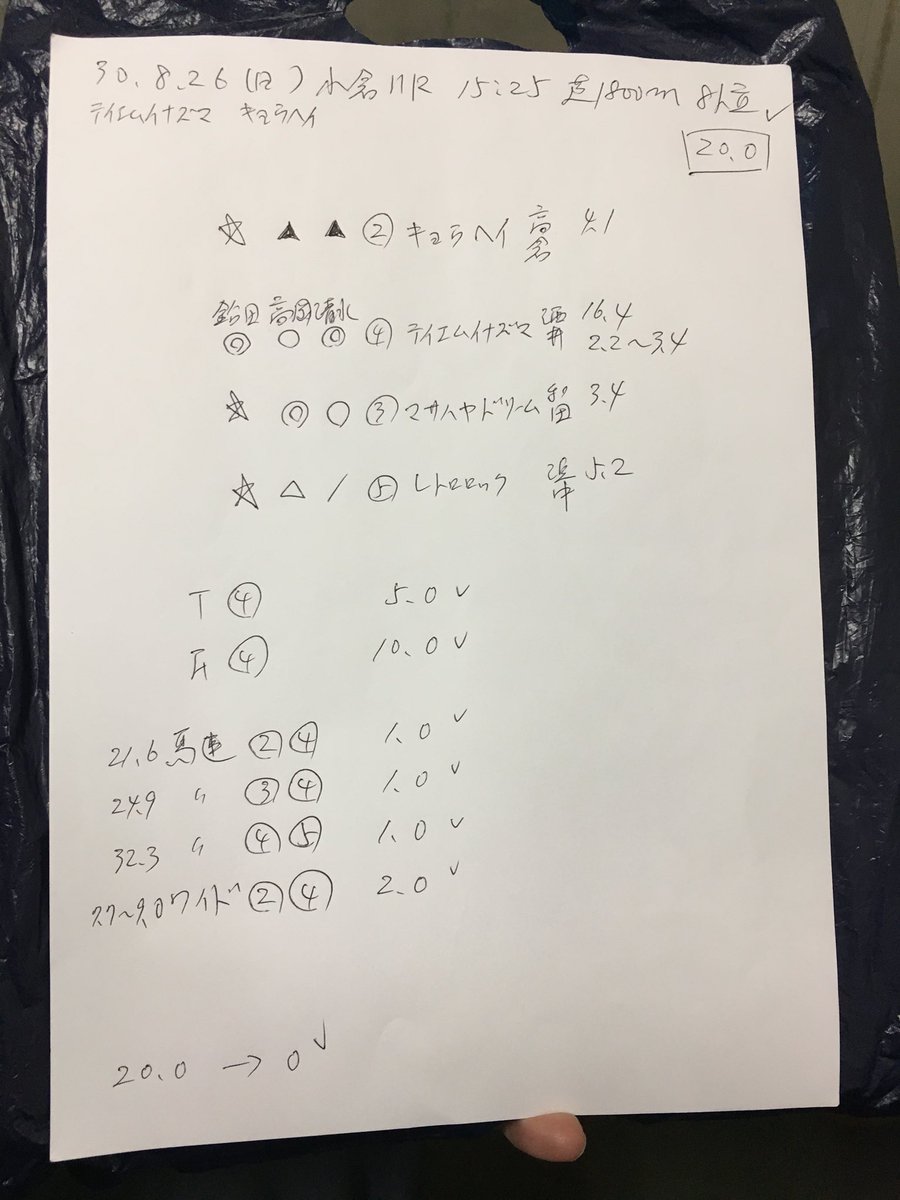 30.8.26(日) 小倉11R 15:25 芝1800m 8位
テイエムイナズマ キョラヘイ
20.0
☆ ▲ ▲ ② キョラヘイ 高倉 4.1
鮫田 高岡 清水
◎ ○ ◎ ④ テイエムイナズマ 酒井 16.4
2.2〜3.4
☆ ◎ ○ ③ マサハヤドリーム 和田 3.4
☆ △ / ⑤ レトロロック 浜中 5.2
T ④ 5.0 ✓
F ④ 10.0 ✓
21.6 馬連 ② ④ 1.0 ✓
24.9 〃 ③ ④ 1.0 ✓
32.3 〃 ④ ⑤ 1.0 ✓
ワイド ② ④ 2.0 ✓
20.0 → 0 ✓